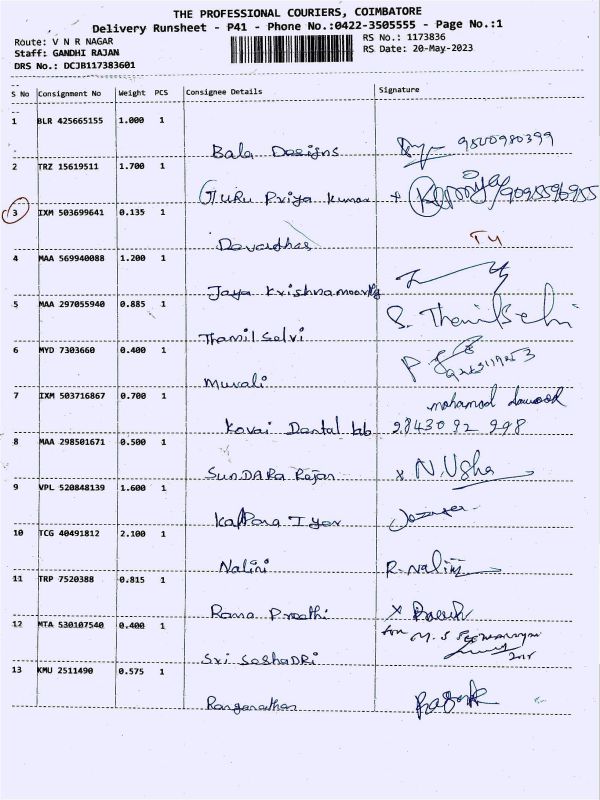 THE PROFESSIONAL COURIERS, COIMBATORE
Delivery Runsheet - P41 - Phone No.:0422-3505555 - Page No.:1
Route: V N R NAGAR
Staff: GANDHI RAJAN
DRS No.: DCJB117383601
RS No.: 1173836
RS Date: 20-May-2023
S No Consignment No Weight PCS Consignee Details Signature
1 BLR 425665155 1.000 1
Bala Designs 9500980399
2 TRZ 15619511 1.700 1
Guru Priya Kumar x 9095596955
3 IXM 503699641 0.135 1
Devadhas
4 MAA 569940088 1.200 1
Jaya Krishnamoorthy
5 MAA 297055940 0.885 1
Thamil Selvi S. Thamilselvi
6 MYD 7303660 0.400 1
Murali P
7 IXM 503716867 0.700 1
mohamad dawood
Kovai Dental lab 9843092 998
8 MAA 298501671 0.500 1
SUNDARA Rajan x N. Usha
9 VPL 520848139 1.600 1
Kalpana Iyer
10 TCG 40491812 2.100 1
Nalini R. Nalini
11 TRP 7520388 0.815 1
Rama Preethi x
12 MTA 530107540 0.400 1
for M. S
Sri SeshaDRi
13 KMU 2511490 0.575 1
Ranganathan